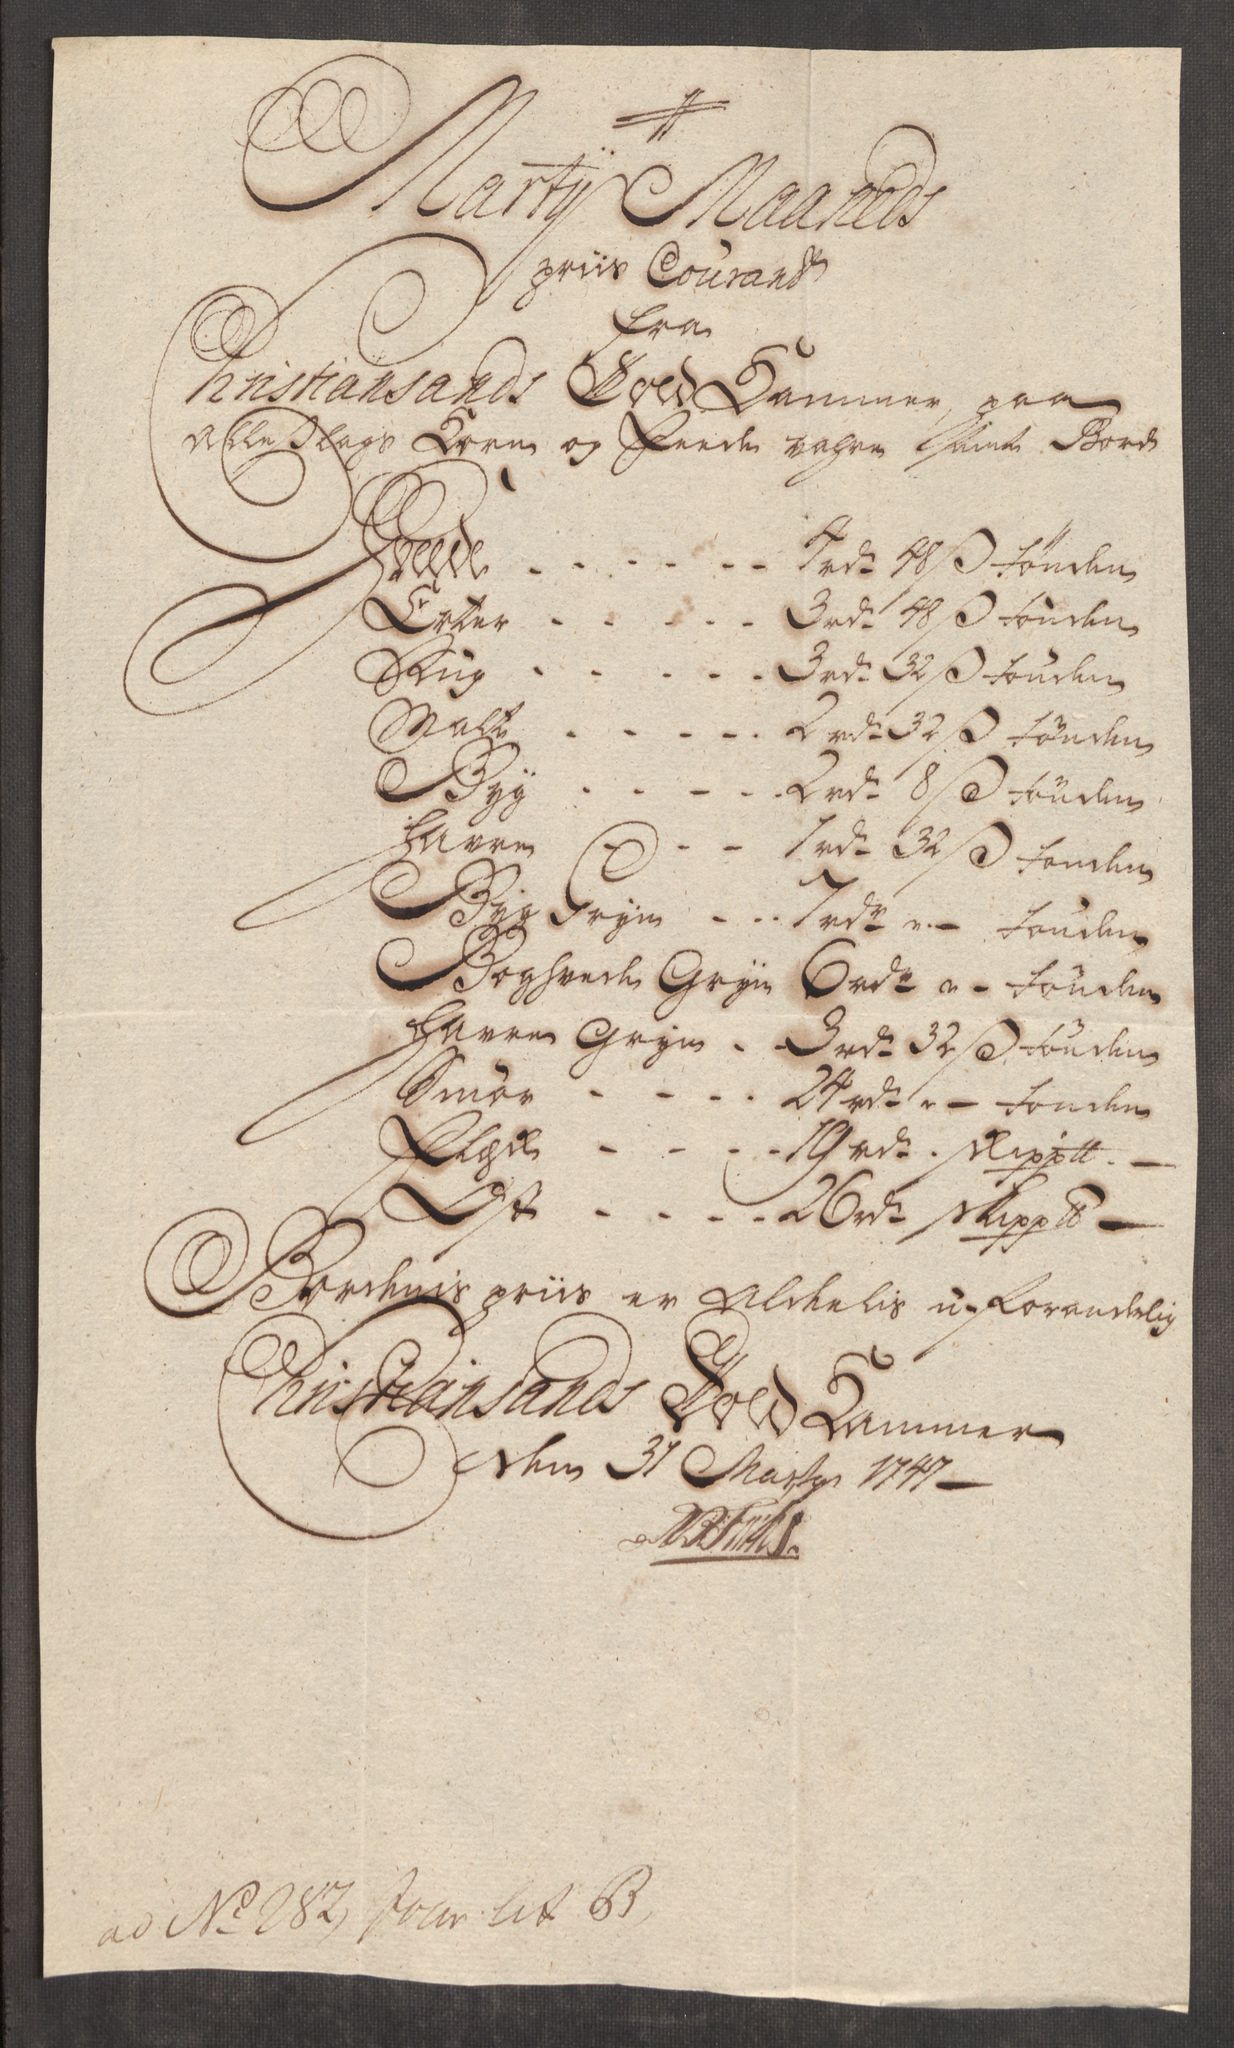 Martij Maaneds
priis Courandt
fra
Christiansands Told Kammer, paa
Alle Slags Korn og Feede vahre samt Bord
Hvede - - - - - - 4 rdr 48 ß tönden
Erter - - - - - 3 rdr 48 ß tönden
Rug - - - - - 3 rdr 32 ß tönden
Malt - - - - - 2 rdr 32 ß tönden
Byg - - - - - 2 rdr 8 ß tönden
Havre - - - 1 rdr 32 ß tönden
Byg Gryn - - - 7 rdr " - tönden
Boghvede Gryn 6 rdr " - tönden
Havre Gryn - - 3 rdr 32 ß tönden
Smör - - - - 24 rdr " - tönden
Flesk - - - - 19 rdr - skipp℔ -
Ost - - - - 26 rdr skipp℔ -
Bordenis priis er Aldeelis u-foranderlig
Christiansands Told Kammer
den 31 Martij 1747 -
ad No 282, Jour: lit B,